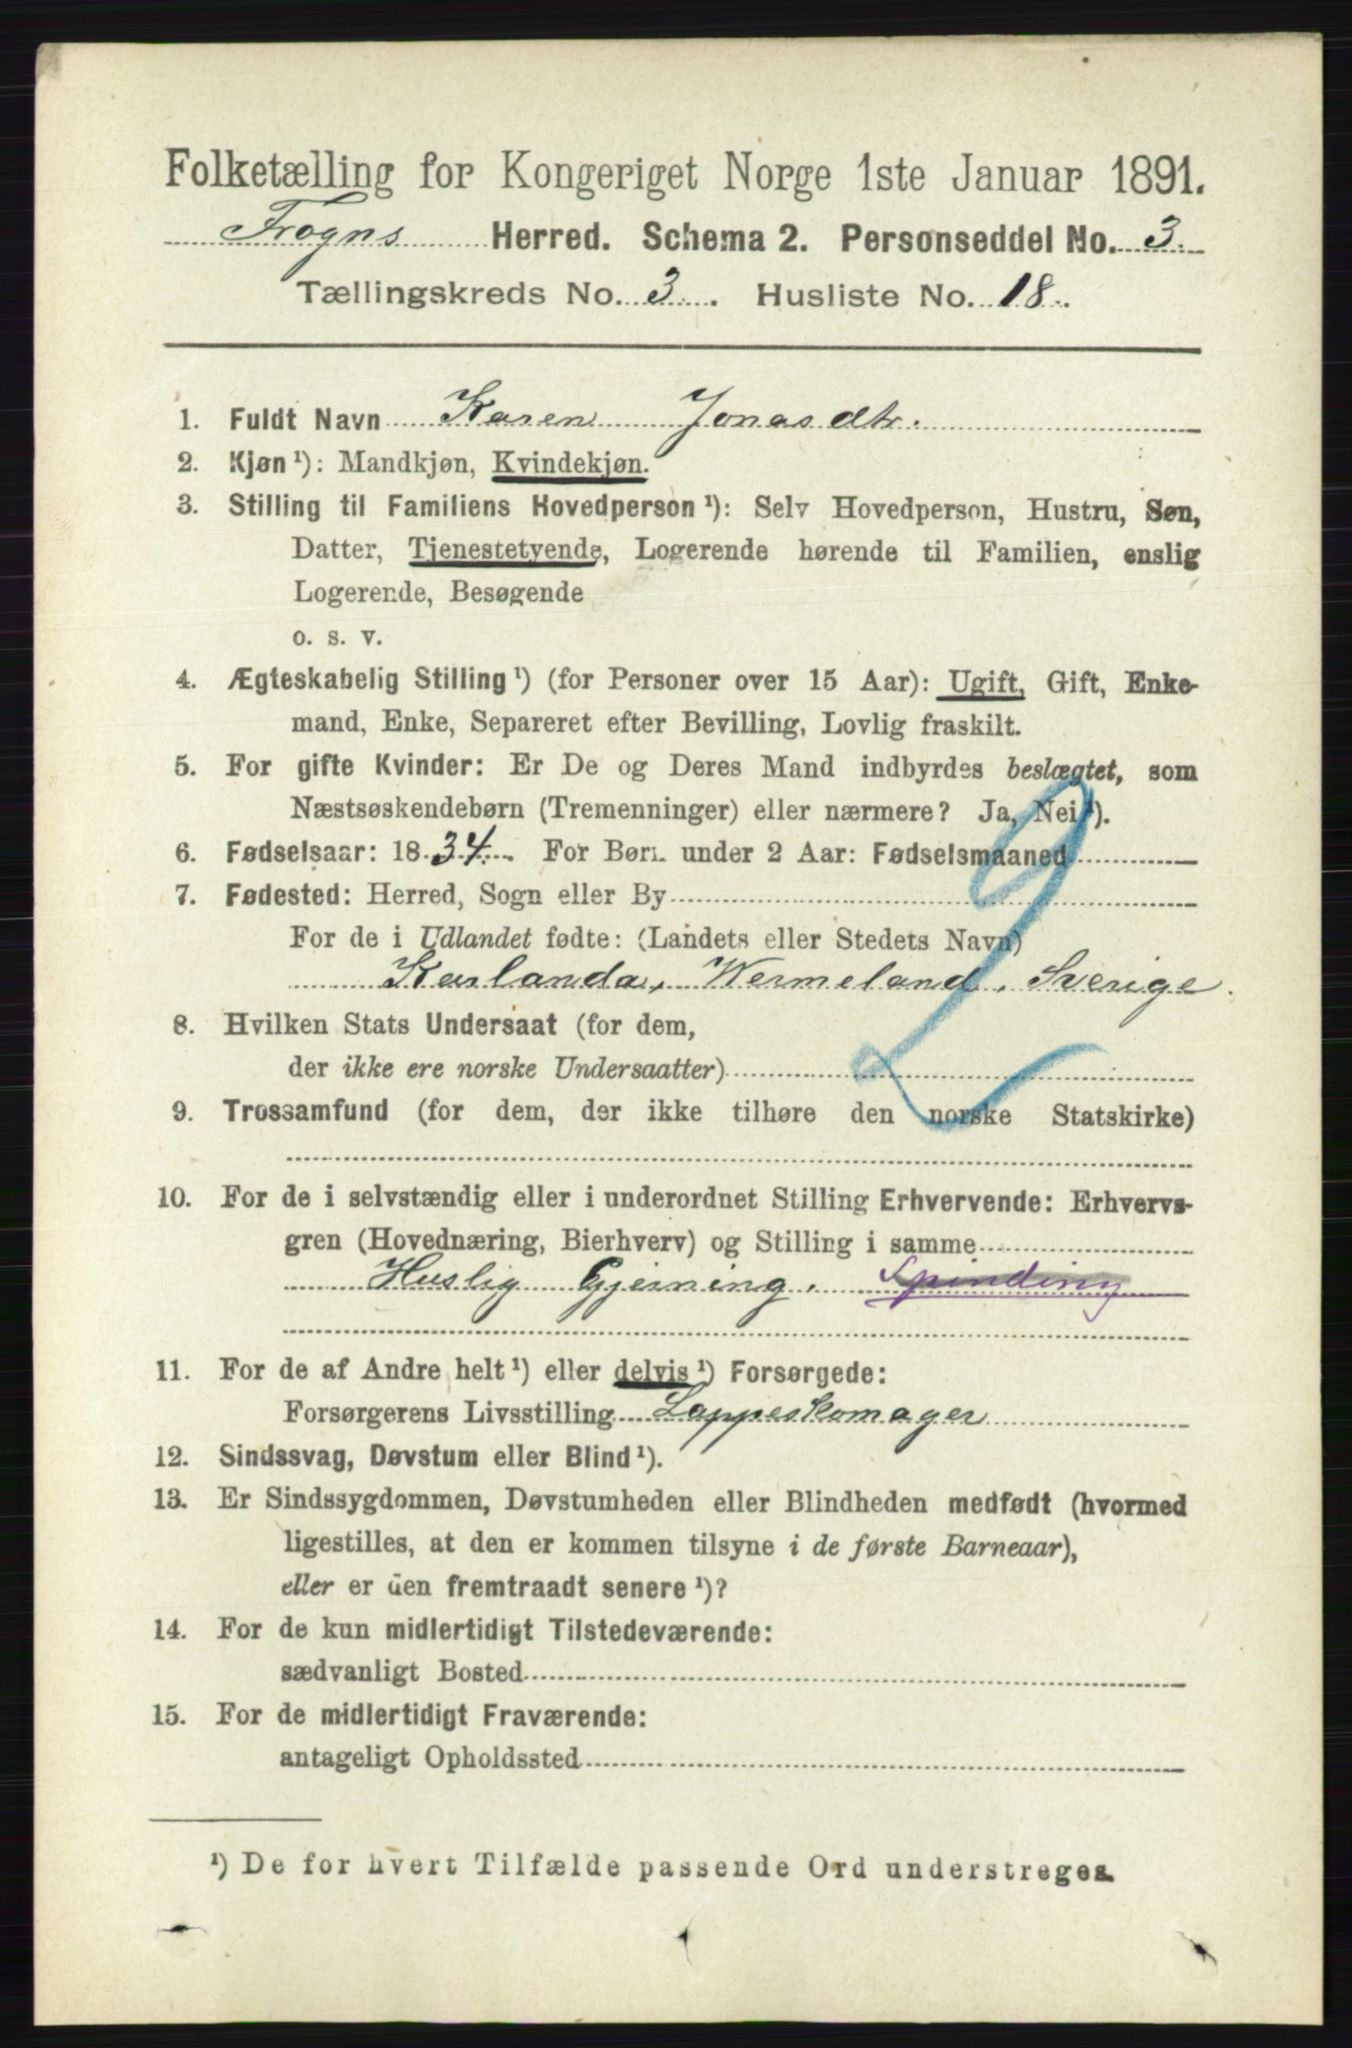 Folketælling for Kongeriget Norge 1ste Januar 1891.
Frogns Herred. Schema 2. Personseddel No. 3.
Tællingskreds No. 3. Husliste No. 18.
1. Fuldt Navn Karen Jonasdtr.
2. Kjøn¹): Mandkjøn, Kvindekjøn.
3. Stilling til Familiens Hovedperson¹): Selv Hovedperson, Hustru, Søn,
Datter, Tjenestetyende, Logerende hørende til Familien, enslig
Logerende, Besøgende
o. s. v.
4. Ægteskabelig Stilling¹) (for Personer over 15 Aar): Ugift, Gift, Enke-
mand, Enke, Separeret efter Bevilling, Lovlig fraskilt.
5. For gifte Kvinder: Er De og Deres Mand indbyrdes beslægtet, som
Næstsøskendebørn (Tremenninger) eller nærmere? Ja, Nei¹).
6. Fødselsaar: 1834. For Børn under 2 Aar: Fødselsmaaned
7. Fødested: Herred, Sogn eller By
For de i Udlandet fødte: (Landets eller Stedets Navn)
Karlanda, Wermeland, Sverige.
8. Hvilken Stats Undersaat (for dem,
der ikke ere norske Undersaatter)
9. Trossamfund (for dem, der ikke tilhøre den norske Statskirke)
10. For de i selvstændig eller i underordnet Stilling Erhvervende: Erhvervs-
gren (Hovednæring, Bierhverv) og Stilling i samme
Huslig Gjerning. Spinding
11. For de af Andre helt¹) eller delvis¹) Forsørgede:
Forsørgerens Livsstilling Lappeskomager
12. Sindssvag, Døvstum eller Blind¹).
13. Er Sindssygdommen, Døvstumheden eller Blindheden medfødt (hvormed
ligestilles, at den er kommen tilsyne i de første Barneaar),
eller er den fremtraadt senere¹)?
14. For de kun midlertidigt Tilstedeværende:
sædvanligt Bosted
15. For de midlertidigt Fraværende:
antageligt Opholdssted
¹) De for hvert Tilfælde passende Ord understreges.